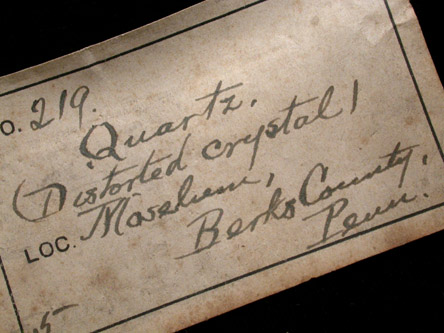 O. 219.
Quartz.
(Distorted crystal)
LOC. Moselem,
Berks County,
Penn.